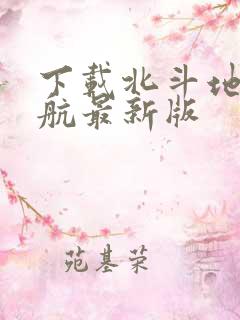 下載北斗地
航最新版
苑基荣